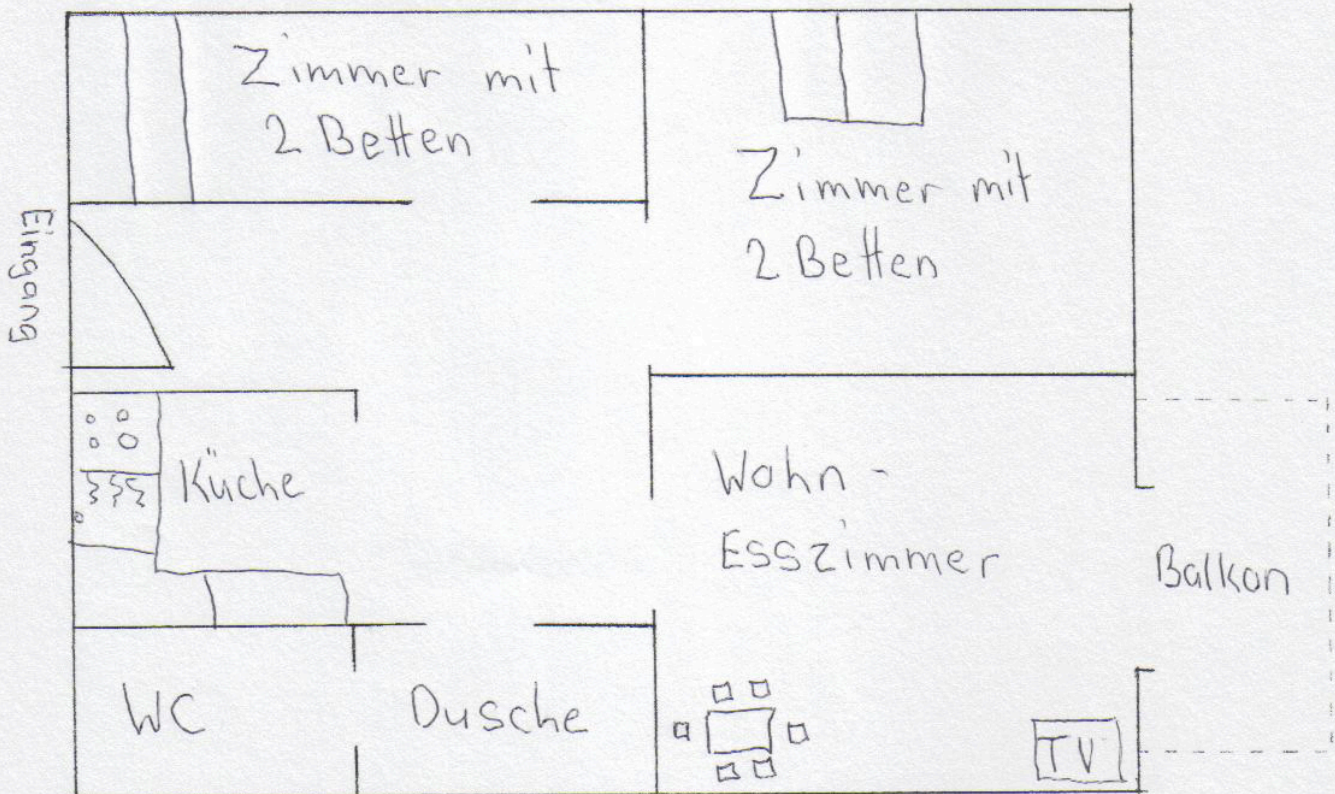 Zimmer mit
2 Betten
Zimmer mit
2 Betten
Eingang
Küche
Wohn-
Esszimmer
Balkon
WC
Dusche
TV